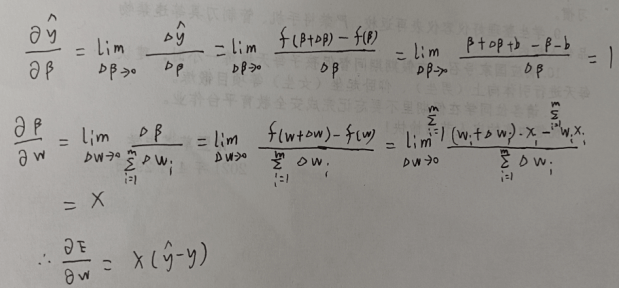 ∂ŷ/∂β = lim_{Δβ→0} Δŷ/Δβ = lim_{Δβ→0} (f(β+Δβ) - f(β))/Δβ = lim_{Δβ→0} (β+Δβ+b-β-b)/Δβ = 1
∂β/∂w = lim_{Δw→0} Δβ/(Σ_{i=1}^{m} Δw_i) = lim_{Δw→0} (f(w+Δw) - f(w))/(Σ_{i=1}^{m} Δw_i) = lim_{Δw→0} (Σ_{i=1}^{m} (w_i+Δw_i)·x_i - Σ_{i=1}^{m} w_i x_i)/(Σ_{i=1}^{m} Δw_i)
= X
∴ ∂E/∂w = X(ŷ-y)